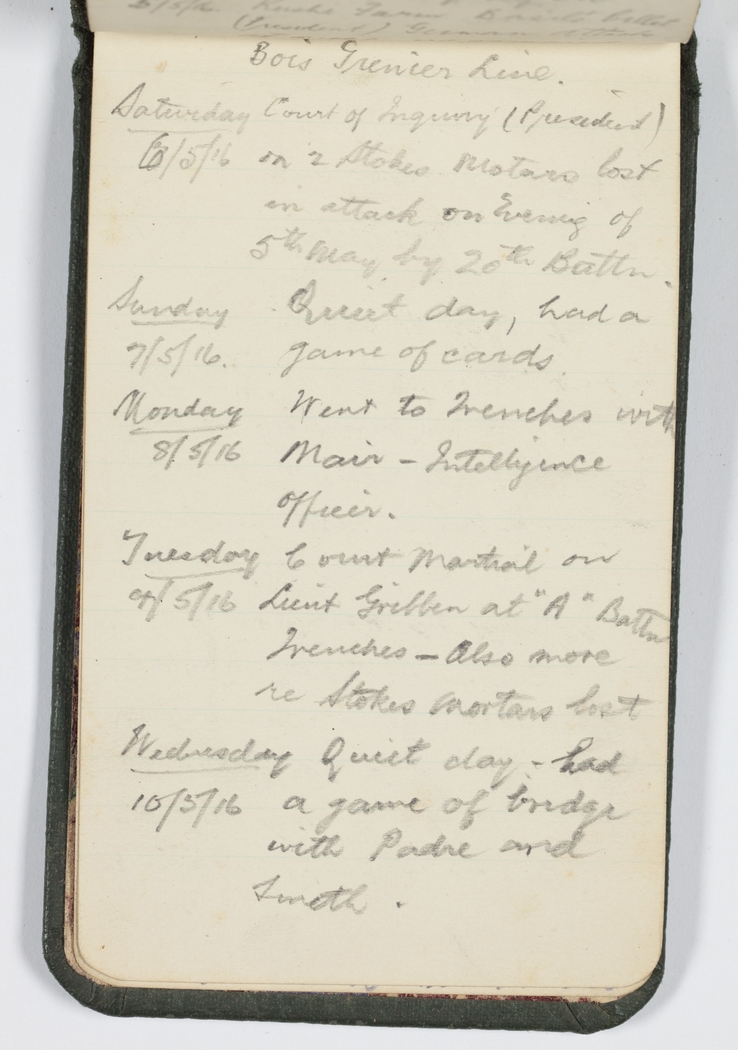 5/5/16
Farm
(President) German Attack
Bois Grenier Line.
Saturday Court of Inquiry (President)
6/5/16 on 2 Stokes Motars lost
in attack on Evenig of
5th May by 20th Battn.
Sunday Quiet day, had a
7/5/16. game of cards.
Monday Went to Trenches with
8/5/16 Mair - Intelligence
Officer.
Tuesday Court Martial on
9/5/16 Lieut Gribben at "A" Battn
Trenches - Also more
re Stokes Mortars lost
Wednesday Quiet day - had
10/5/16 a game of bridge
with Padre and
Smith.